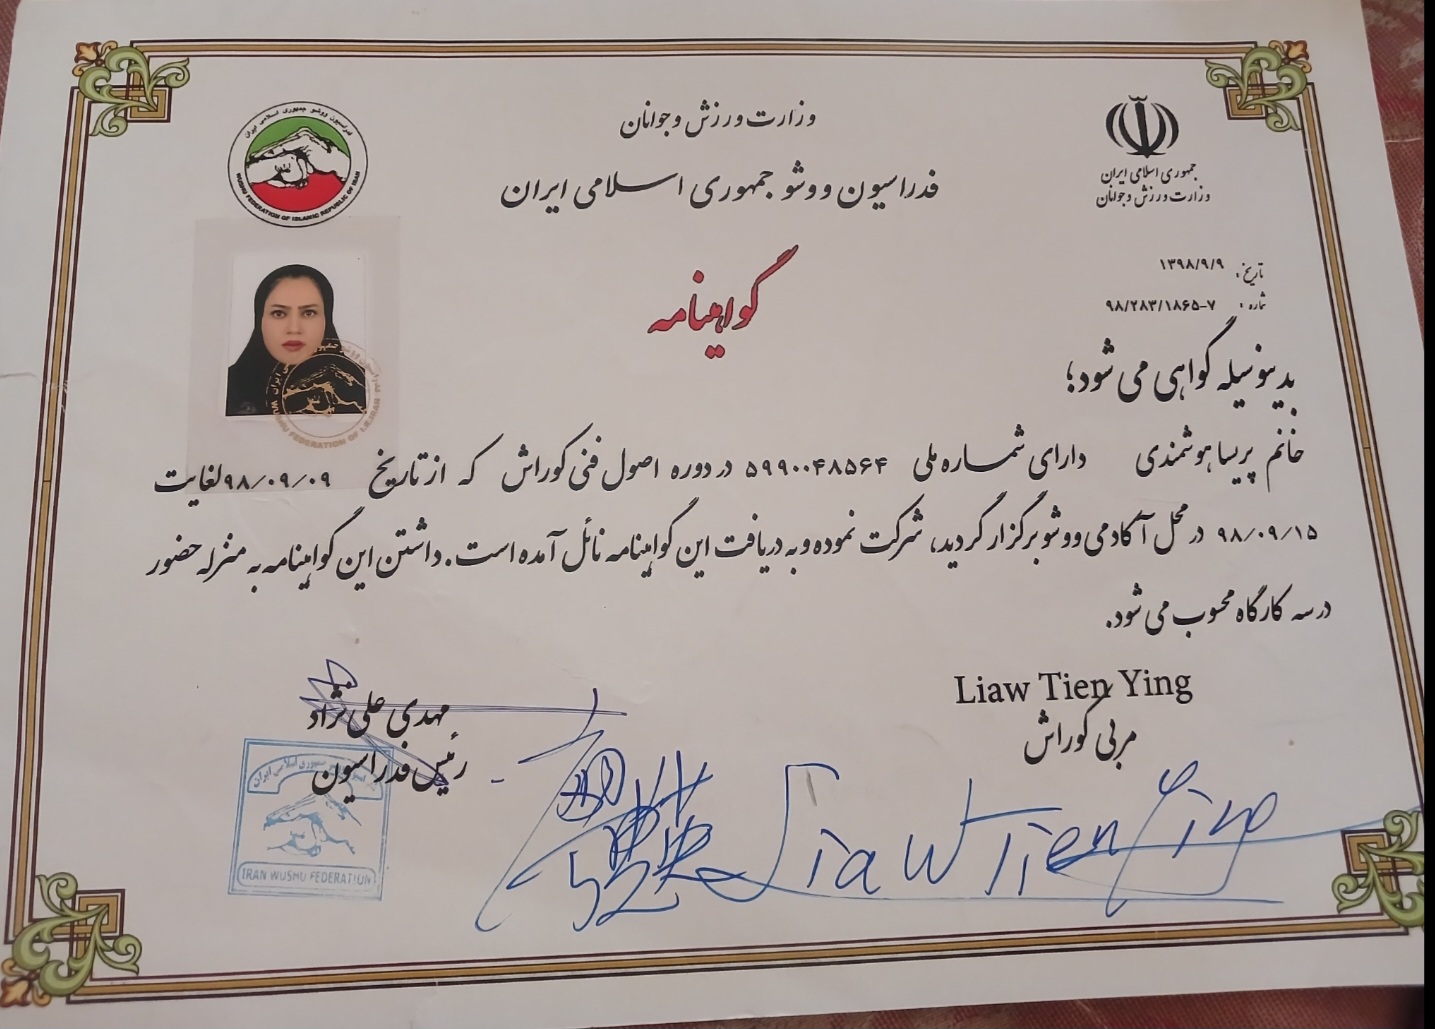 وزارت ورزش و جوانان
فدراسیون ووشو جمهوری اسلامی ایران
جمهوری اسلامی ایران
وزارت ورزش و جوانان
فدراسیون ووشو جمهوری اسلامی ایران
WUSHU FEDERATION OF ISLAMIC REPUBLIC OF IRAN
تاریخ: ۱۳۹۸/۹/۹
شماره: ۹۸/۲۸۳/۱۸۶۵-۷
گواهینامه
WUSHU FEDERATION OF I.R.IRAN
بدینوسیله گواهی می شود؛
خانم پریسا هوشمندی دارای شماره ملی ۵۹۹۰۰۴۸۵۶۴ در دوره اصول فنی کوراش که از تاریخ ۹۸/۰۹/۰۹ لغایت
۹۸/۰۹/۱۵ در محل آکادمی ووشو برگزار گردید، شرکت نموده و به دریافت این گواهینامه نائل آمده است. داشتن این گواهینامه به منزله حضور
در سه کارگاه محسوب می شود.
Liaw Tien Ying
مربی کوراش
مهدی علی نژاد
رئیس فدراسیون
IRAN WUSHU FEDERATION
Liaw Tien Ying